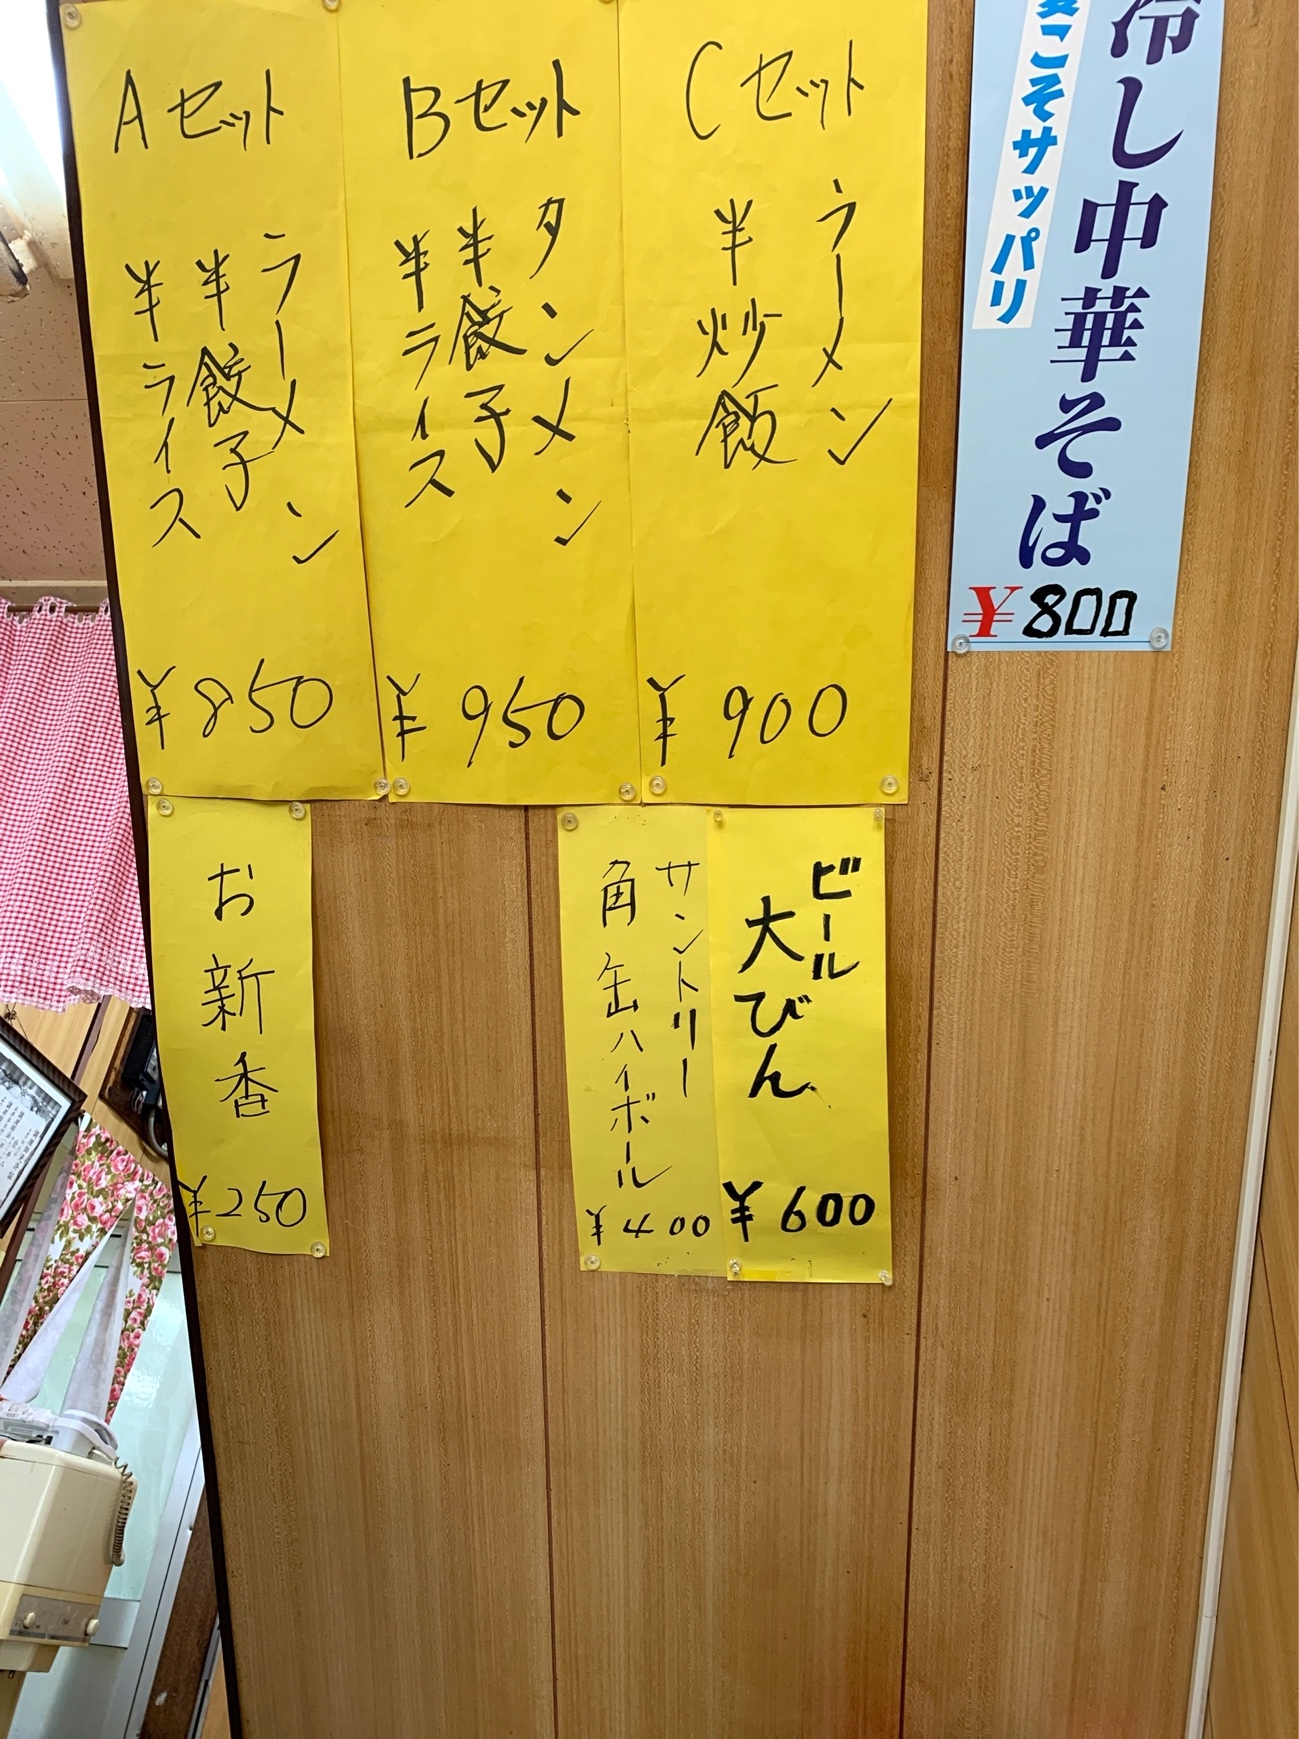 Aセット
ラーメン
半餃子
半ライス
¥850
Bセット
タンメン
半餃子
半ライス
¥950
Cセット
ラーメン
半炒飯
¥900
冷し中華そば
こそサッパリ
¥800
お新香
¥250
サントリー
角缶ハイボール
¥400
ビール
大びん
¥600